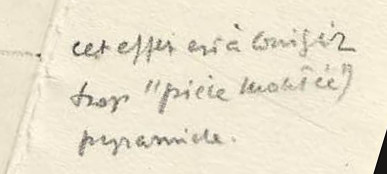 cet effet est à corriger
trop "pièce montée"
pyramide.